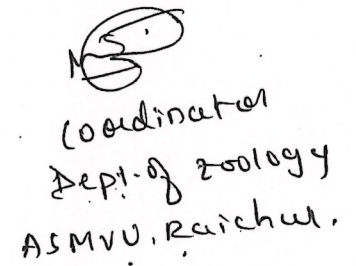 Coordinator
Dept. of Zoology
ASMVU, Raichur.